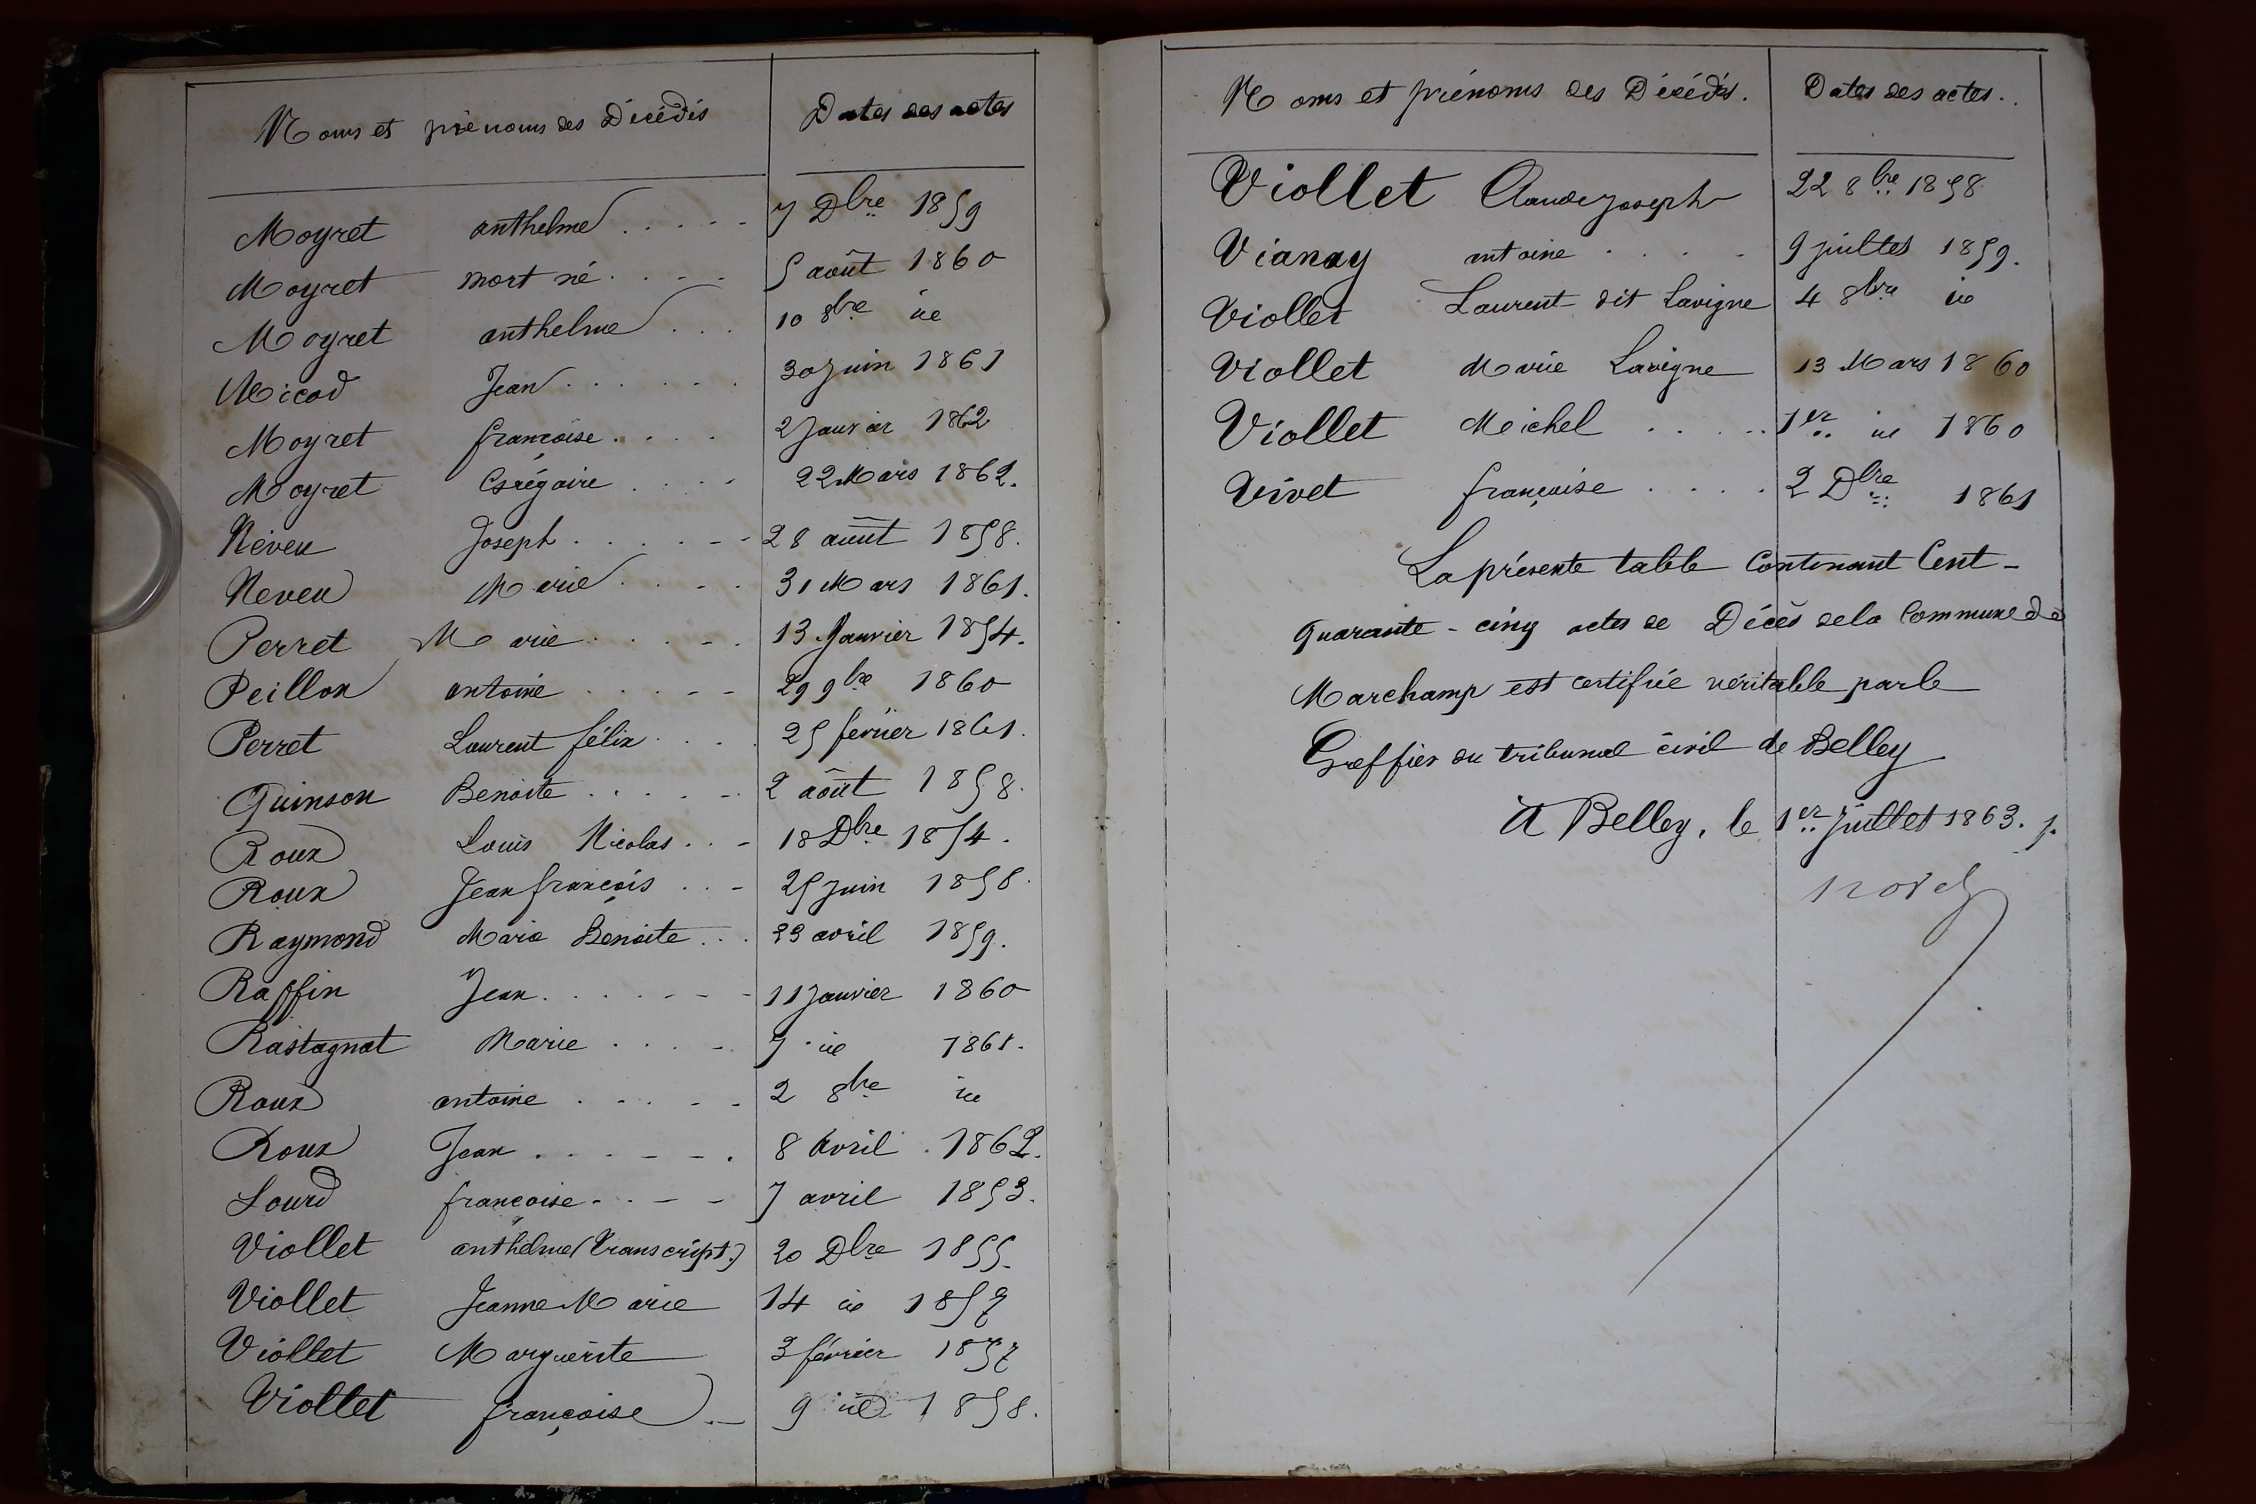 Noms et prénoms des Décédés Dates des actes
Moyret anthelme 7 Dbre 1859
Moyret mort né 5 août 1860
Moyret anthelme 10 8bre id
Micod Jean 30 Juin 1861
Moyret françoise 2 Janvier 1862
Moyret Grégoire 22 Mars 1862.
Neveu Joseph 28 août 1858.
Neveu Marie 31 Mars 1861.
Perret Marie 13 Janvier 1854.
Peillon antoine 29 9bre 1860
Perret Laurent félix 25 février 1861.
Quinson Benoite 2 août 1858.
Roux Louis Nicolas 18 Dbre 1854.
Roux Jean françois 25 juin 1858.
Raymond Marie Benoite 23 avril 1859.
Raffin Jean 11 Janvier 1860
Rastagnat Marie 7 id 1861.
Roux antoine 2 8bre id
Roux Jean 8 avril 1862.
Sourd françoise 7 avril 1853.
Viollet anthelme (Transcript.) 20 Dbre 1855.
Viollet Jeanne Marie 14 id 1857
Viollet Marguerite 3 février 1857
Viollet françoise 9 id 1858.
Noms et prénoms des Décédés. Dates des actes.
Viollet Claude Joseph 22 8bre 1858
Vianay antoine 9 juillet 1859.
Viollet Laurent dit Lavigne 4 8bre id
Viollet Marie Lavigne 13 Mars 1860
Viollet Michel 1er id 1860
Vivet françoise 2 Dbre 1861
La présente table Contenant Cent-
quarante-cinq actes de Décès de la Commune de
Marchamp est certifiée véritable par le
Greffier du tribunal civil de Belley
A Belley, le 1er juillet 1863.